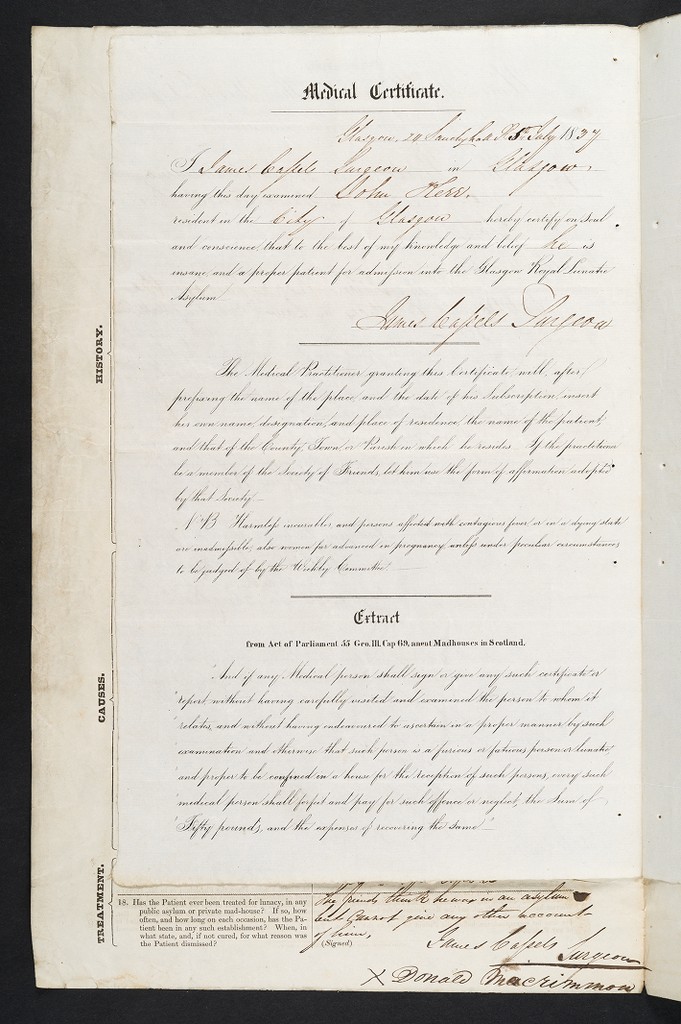 Medical Certificate.
Glasgow, 24 Sauchyhall St 5th July 1837
I James Cassels Surgeon in Glasgow,
having this day examined John Kerr,
resident in the City of Glasgow hereby certify on soul
and conscience, that to the best of my knowledge and belief he is
insane, and a proper patient for admission into the Glasgow Royal Lunatic
Asylum
James Cassels Surgeon
The Medical Practitioner granting this Certificate, will, after
prefixing the name of the place, and the date of his Subscription, insert
his own name, designation, and place of residence, the name of the patient,
and that of the County, Town, or Parish in which he resides. If the practitioner
be a member of the Society of Friends, let him use the form of affirmation adopted
by that Society.
NB Harmless incurables, and persons affected with contagious fever, or in a dying state
are inadmissible, also women far advanced in pregnancy, unless under peculiar circumstances,
to be judged of by the Weekly Committee
Extract
from Act of Parliament 55 Geo. III. Cap 69, anent Madhouses in Scotland.
"And if any Medical person shall sign or give any such certificate or
"report, without having carefully visited and examined the person to whom it
"relates, and without having endeavoured to ascertain in a proper manner by such
examination and otherwise that such person is a furious or fatuous person or lunatic
"and proper to be confined in a house for the reception of such persons, every such
"medical person shall forfeit and pay for such offence or neglect, the Sum of
"Fifty pounds, and the expenses of recovering the same"
HISTORY.
CAUSES.
TREATMENT.
18. Has the Patient ever been treated for lunacy, in any
public asylum or private mad-house? If so, how
often, and how long on each occasion, has the Pa-
tient been in any such establishment? When, in
what state, and, if not cured, for what reason was
the Patient dismissed?
The friends think he was in an asylum
but cannot give any other account
of him,
(Signed) James Cassels Surgeon
X Donald MacCrimmon